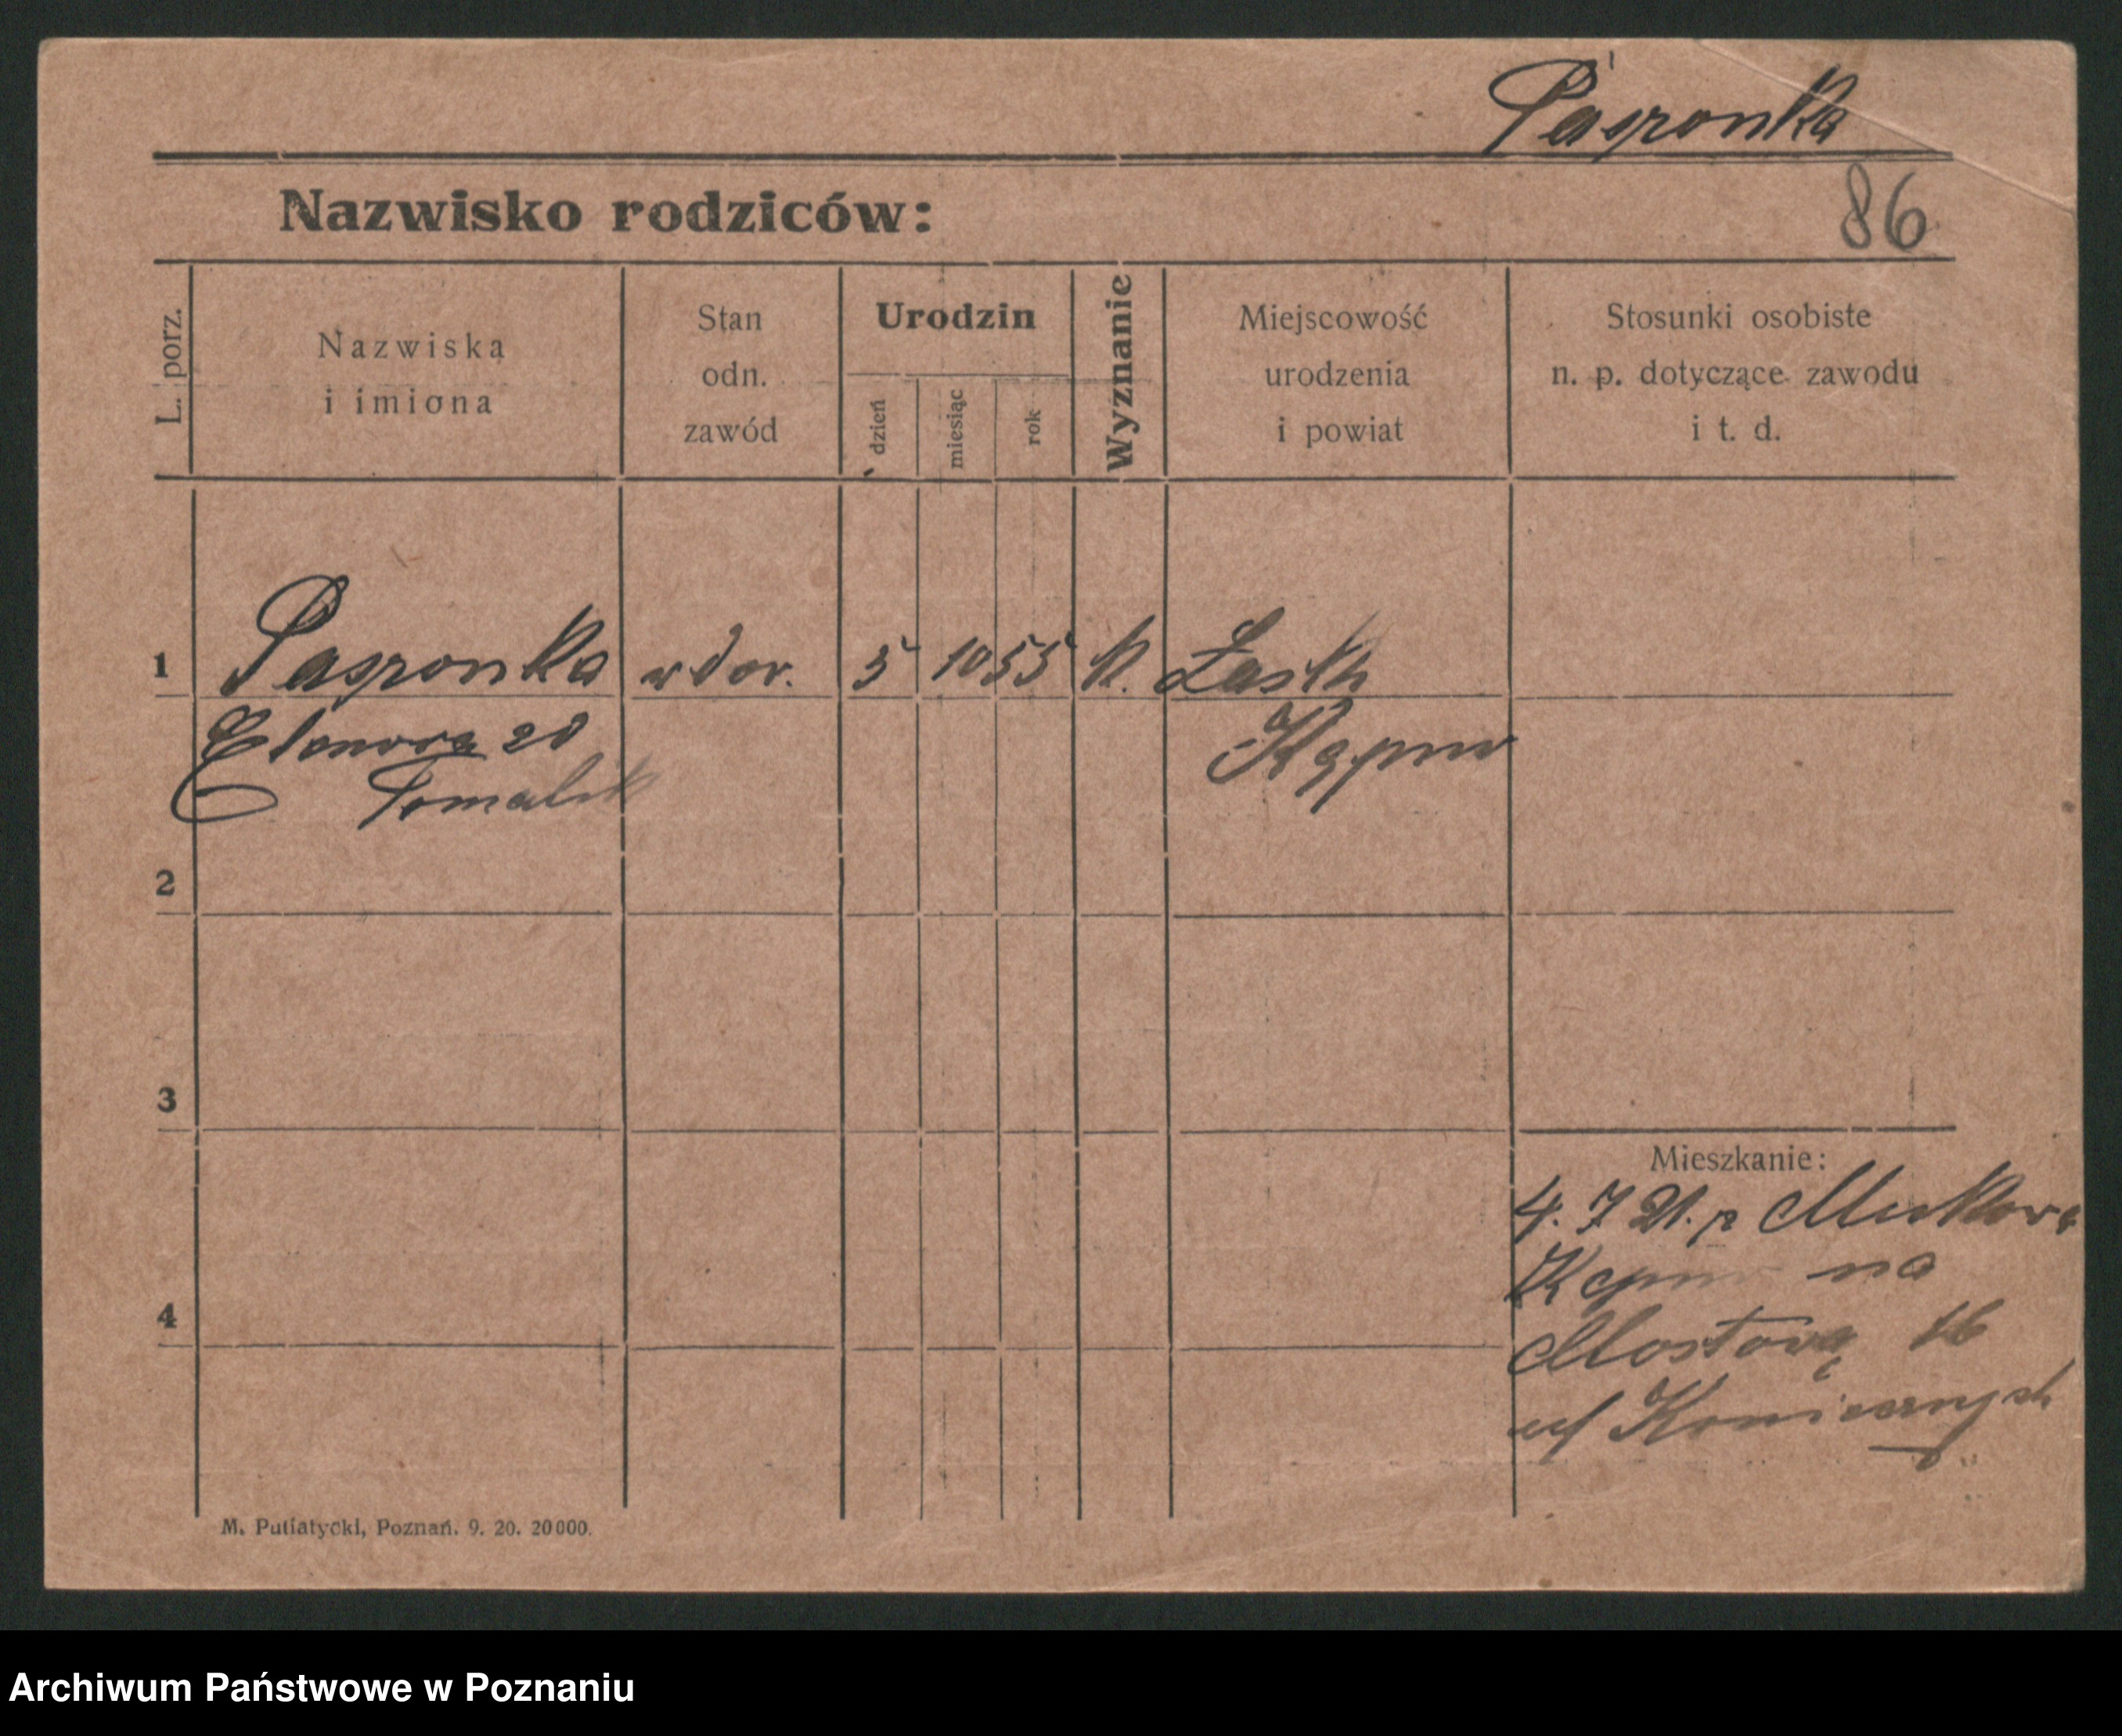 Pasronka
86
Nazwisko rodziców:
L. porz.
Nazwiska
i imiona
Stan
odn.
zawód
Urodzin
dzień
miesiąc
rok
Wyznanie
Miejscowość
urodzenia
i powiat
Stosunki osobiste
n. p. dotyczące zawodu
i t. d.
1 Pasronka wdow. 5 10 55 k. Laski
Eleonora zd Kępno
2
3
4
Mieszkanie:
4. 7 21. z
Kępno na
Mostową 16
M. Putiatycki, Poznań. 9. 20. 20000.
Archiwum Państwowe w Poznaniu